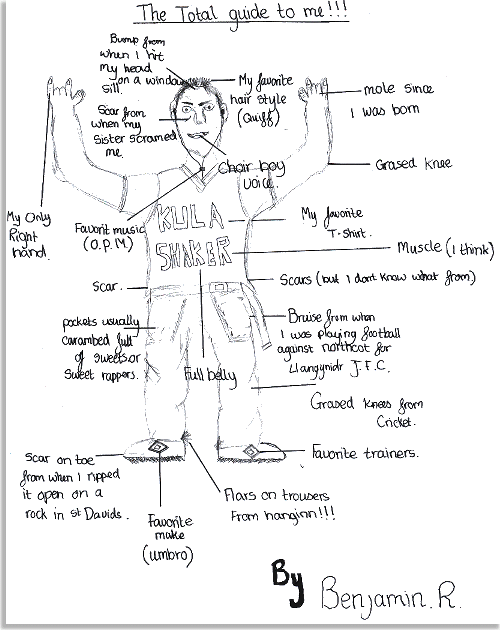 The Total guide to me!!!
Bump from
when I hit
my head
on a window
sill.
My favorite
hair style
(Quiff)
mole since
I was born
Scar from
when my
sister scramed
me.
Choir boy
voice.
Grased knee
My Only
Right
hand.
Favorit music
(O.P.M)
KULA
SHAKER
My favorite
T-Shirt.
Muscle (I think)
Scar.
Scars (but I dont know what from)
pockets usually
carambed full
of sweets or
sweet rappers.
Full belly
Bruise from when
I was playing football
against northcot for
Llangynidr J.F.C.
Grased knees from
Cricket.
Scar on toe
from when I ripped
it open on a
rock in st Davids.
Favorite trainers.
Flars on trousers
From hanginn!!!
Favorite
make
(umbro)
By
Benjamin. R.